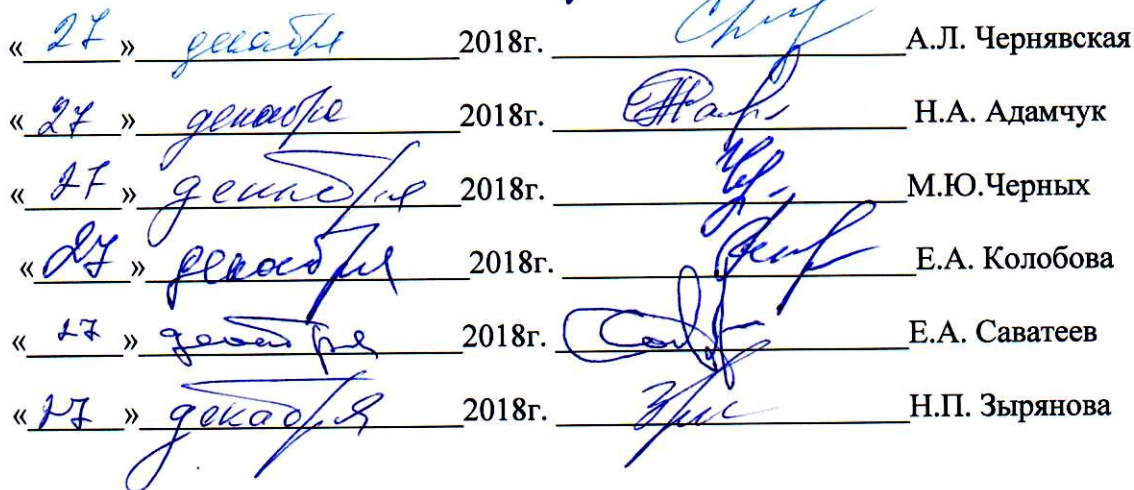 « 27 » декабря 2018г. А.Л. Чернявская
« 27 » декабря 2018г. Н.А. Адамчук
« 27 » декабря 2018г. М.Ю.Черных
« 27 » декабря 2018г. Е.А. Колобова
« 27 » декабря 2018г. Е.А. Саватеев
« 27 » декабря 2018г. Н.П. Зырянова